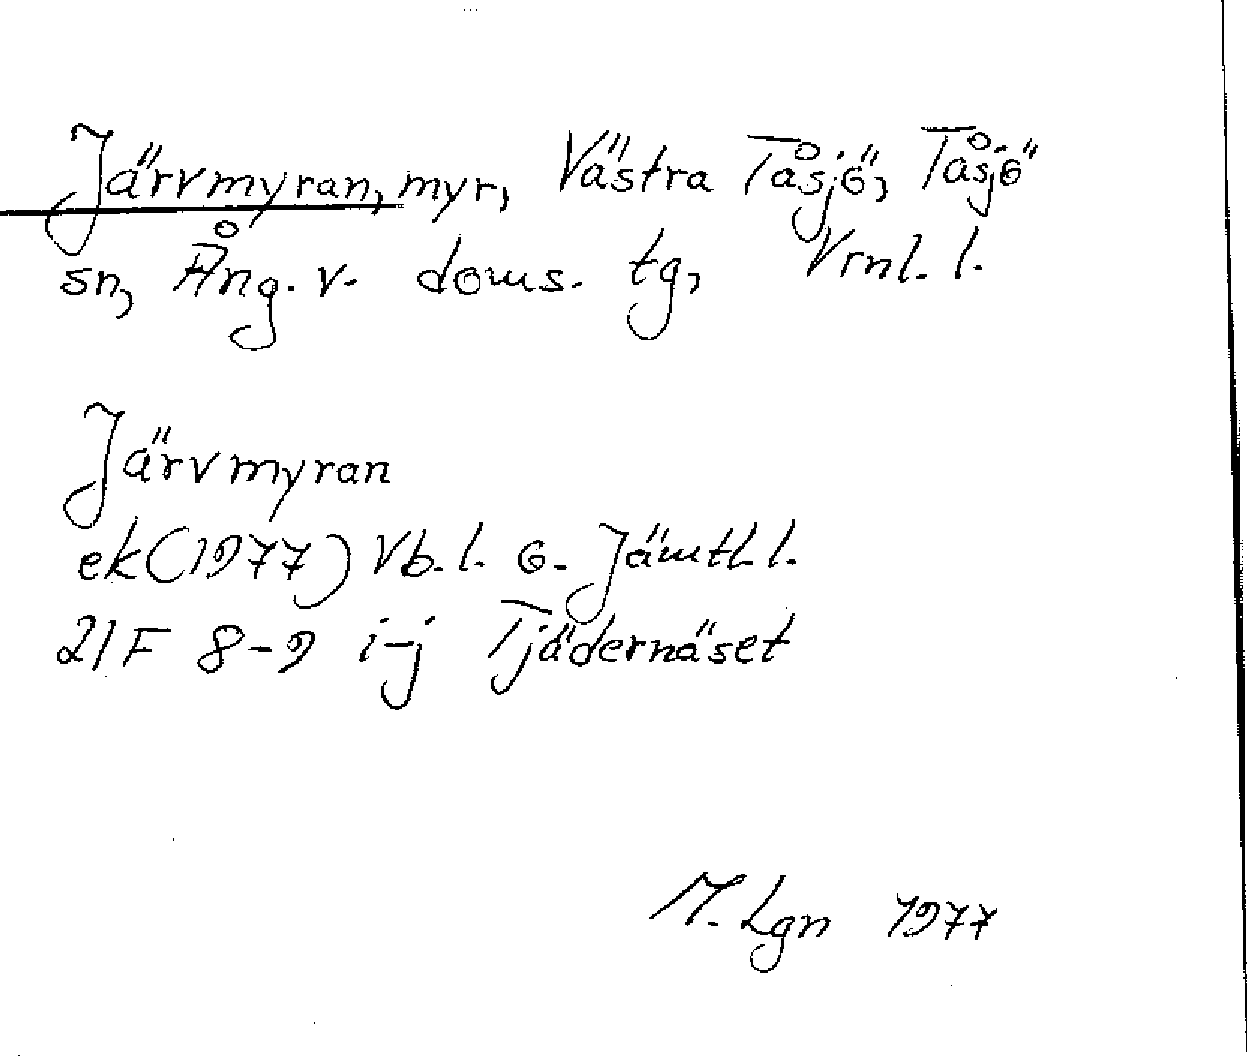 Järvmyran, myr, Västra Tåsjö, Tåsjö
sn, Ång. v. doms. tg, Vrnl. l.
Järvmyran
ek(1977) Vb. l. o. Jämtl. l.
21F 8-9 i-j Tjädernäset
M. Lgn 1977